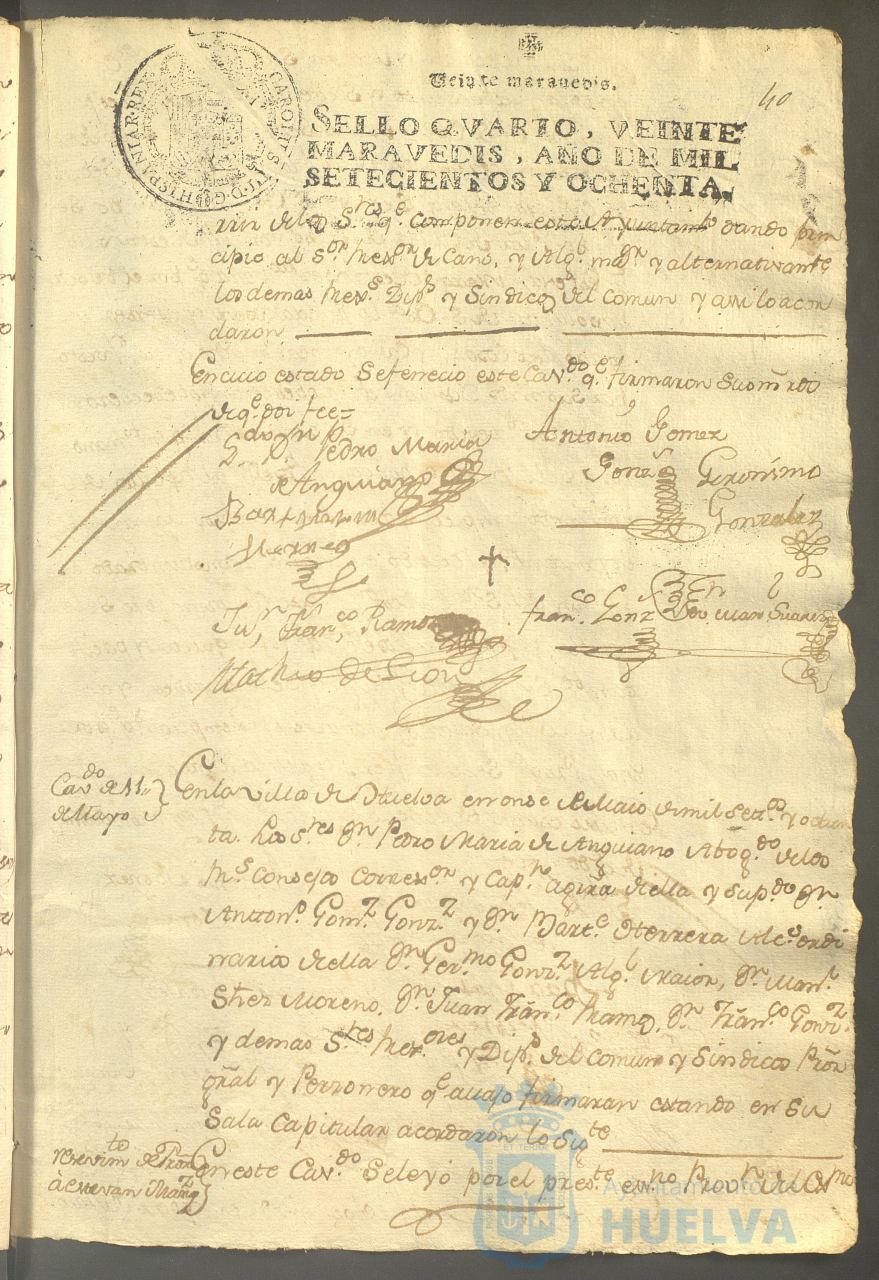 CAROLUS III D.G. HISPANIAR. REX
Veinte maravedis.
40
SELLO QVARTO, VEINTE
MARAVEDIS, AÑO DE MIL
SETECIENTOS Y OCHENTA.
Sres qe componen este Ayuntamto dando prin
cipio al Sor Rexor de Cano, y Alg. maor y alternativamte
los demas Rexs Dips y Sindico del comun y assi lo acor
daron
En cuio estado se fenecio este Cavdo qe firmaron sus mrds
de qe doi fee=
Pedro Maria
de Anguiano
Antonio Gomez
Gonz
Geronimo
Gonzalez
Bartolome
Herrera
Jun Franco Ramos
franco Gonz
Juan Suarez
Matheo de Leon
Cavdo de 11
de Mayo
En la villa de Huelva en onse de Maio de mil Setos y ochen
ta. Los Sres Dn Pedro Maria de Anguiano Abogdo de los
Rs Consejos Correxor y Capn agura de ella y Supdo Dn
Antono Gomz Gonzz y Dn Barte Herrera Alcs ordi
narios de ella Dn Germo Gonzz Algl Maior, Dn Manl
Shez Moreno, Dn Juan Franco Ramos, Dn Franco Gonzz
y demas Sres Rexores y Dips del comun y Sindico Pror
Gral y Perzonero qe avajo firmaran estando en su
Sala Capitular acordaron lo Sigte
resevimto de Pror
à Estevan Marqz
En este Cavdo Se leyó por el preste esno Provn del Exmo
ET TERRAE
Ayuntamiento de
HUELVA